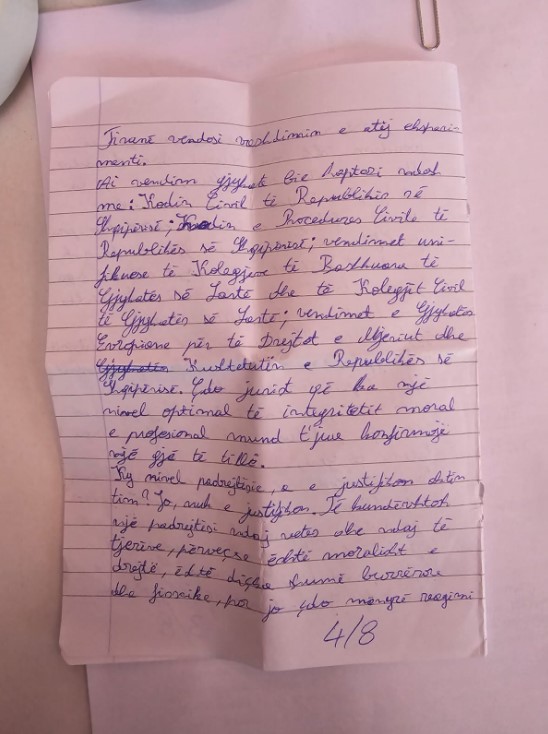 Tiranë vendosi vazhdimin e atij eksperi-
menti.
Ai vendim gjyqësor bie haptazi ndesh
me: Kodin Civil të Republikës së
Shqipërisë; Kodin e Procedurës Civile të
Republikës së Shqipërisë; vendimet uni-
fikuese të Kolegjeve të Bashkuara të
Gjykatës së Lartë dhe të Kolegjit Civil
të Gjykatës së Lartë; vendimet e Gjykatës
Evropiane për të Drejtat e Njeriut dhe
Kushtetutën e Republikës së
Shqipërisë. Çdo jurist që ka një
nivel optimal të integritetit moral
e profesional mund t'jua konfirmojë
një gjë të tillë.
Ky nivel padrejtësie, a e justifikon aktin
tim? Jo, nuk e justifikon. Të kundërshtosh
një padrejtësi ndaj vetes dhe ndaj të
tjerëve, përveçse është moralisht e
drejtë, është diçka shumë burrërore
dhe fisnike, por jo çdo mënyrë reagimi
4/8